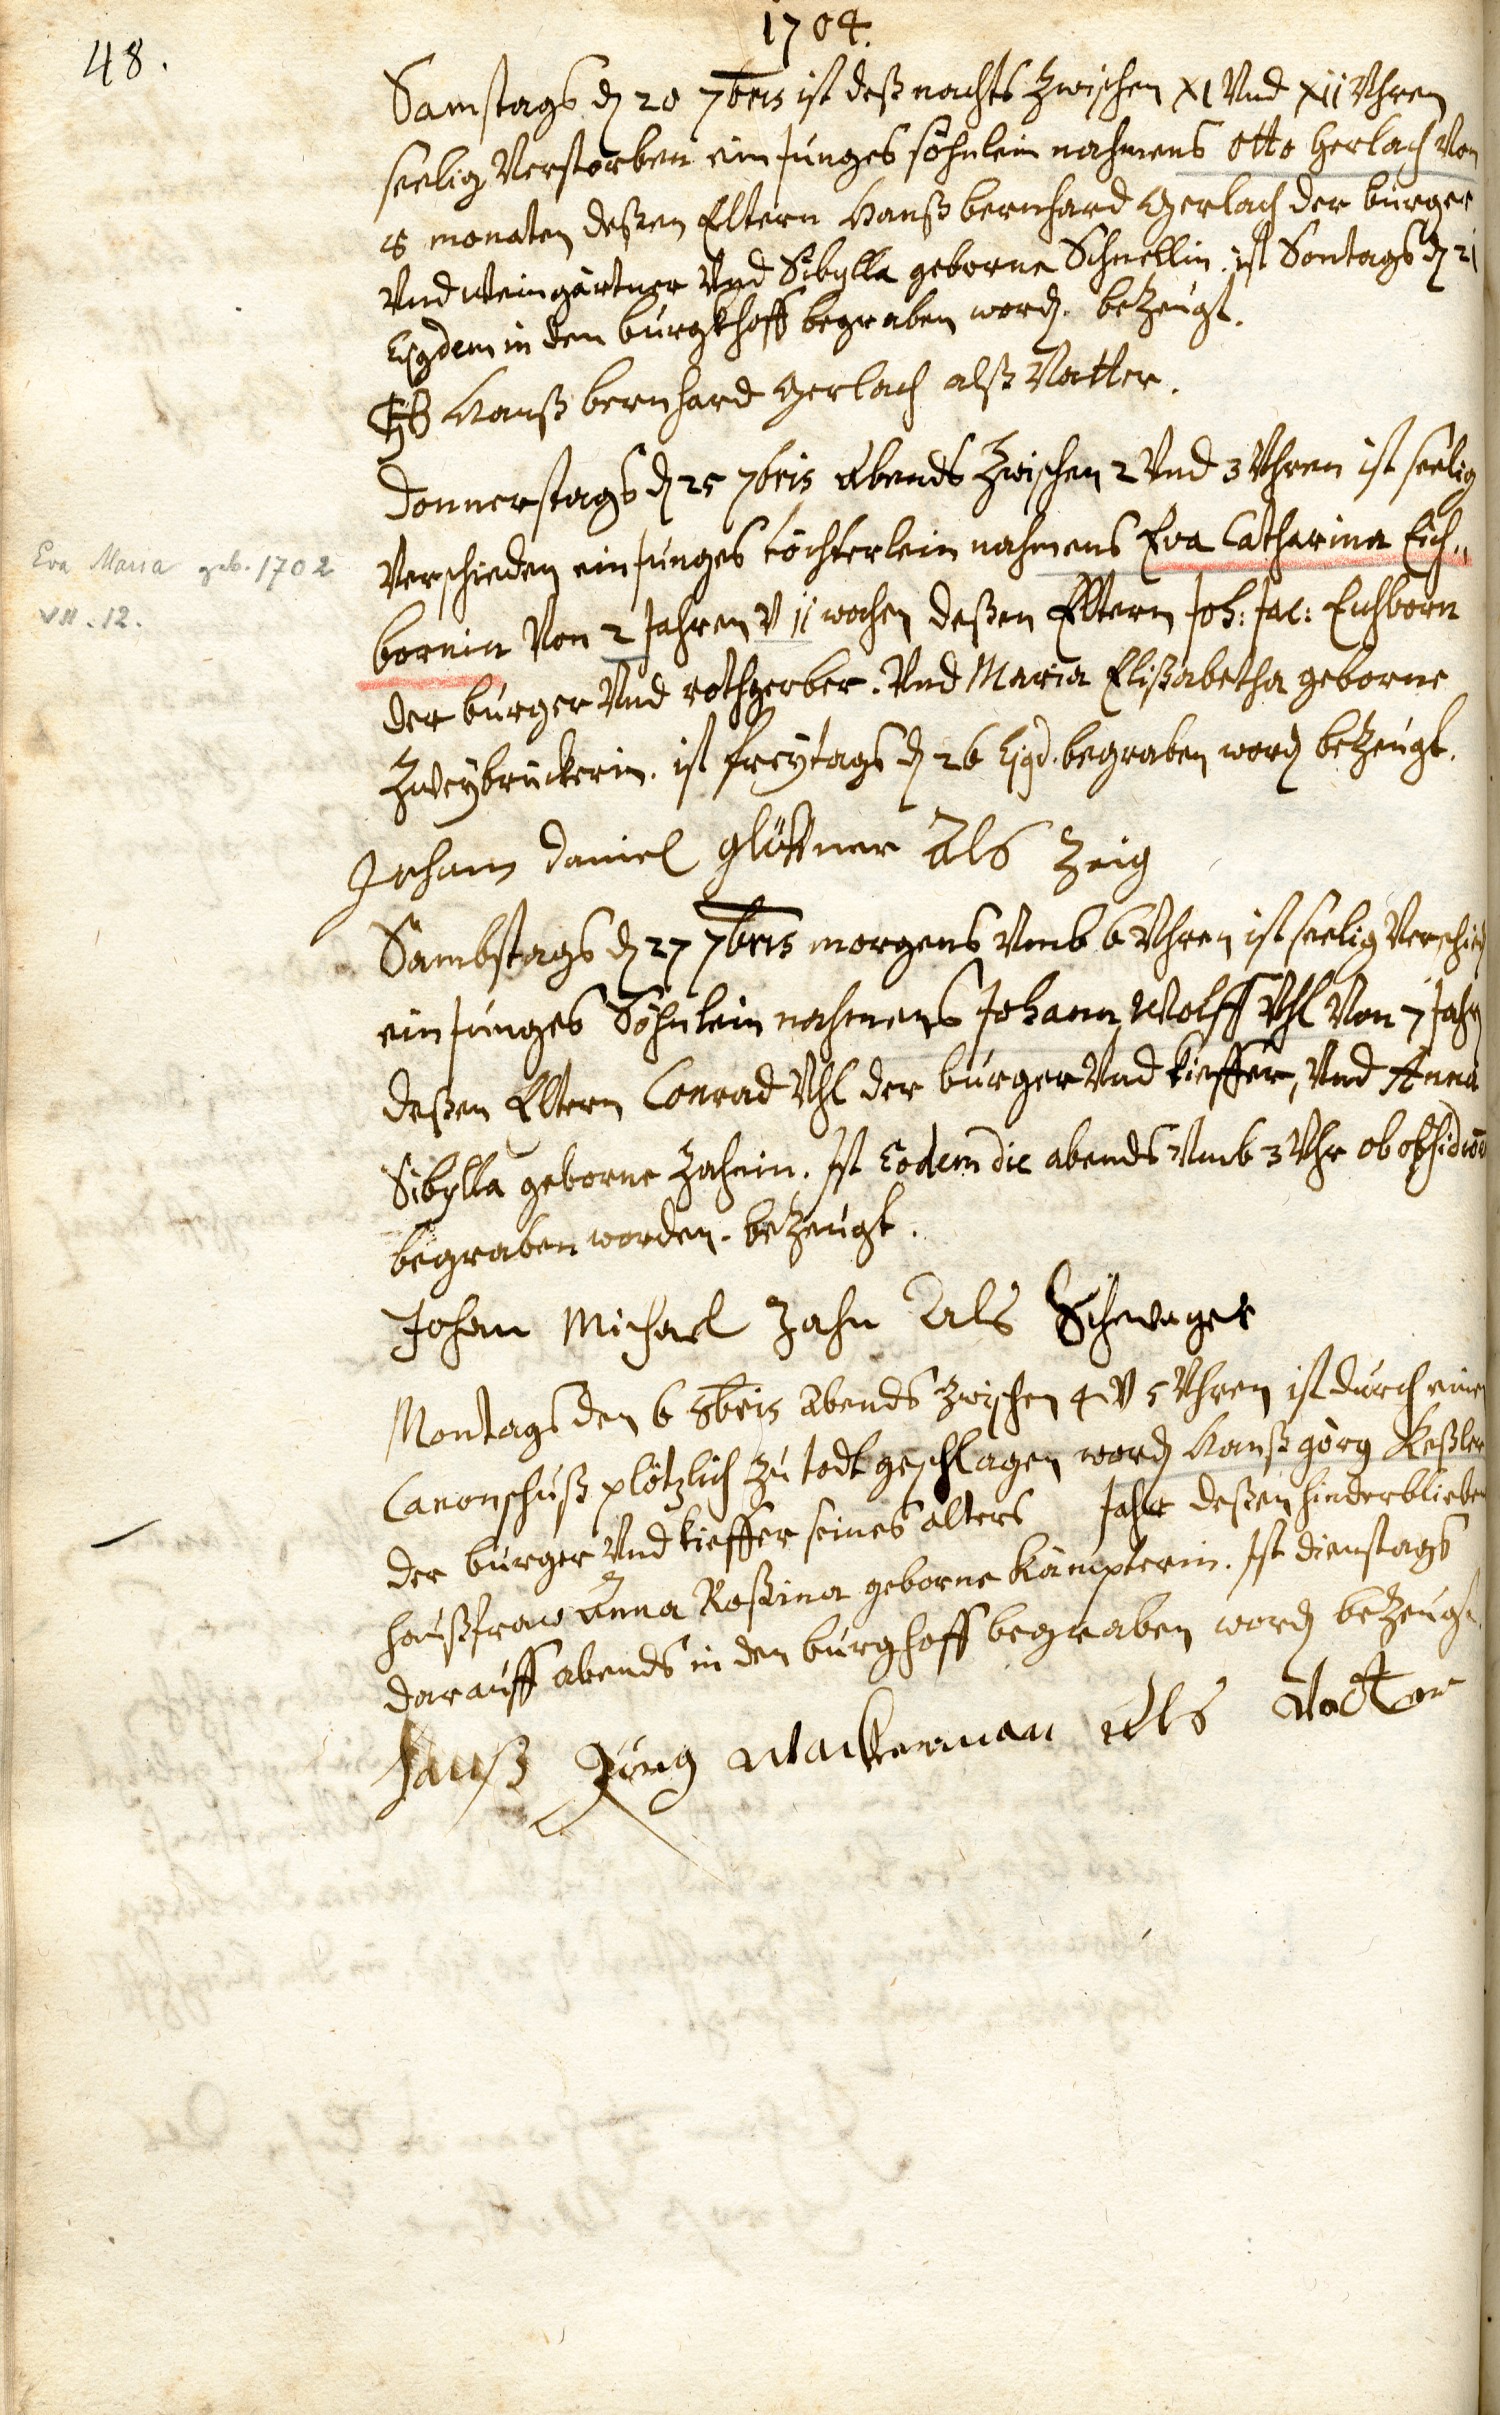 1704.
48.
Samstags dē 20 7bris ist deß nachts zwischen XI Vnd XII Vhren
seelig Verstorben ein junges söhnlein nahmens Otto Gerlach Von
monaten deßen Eltern Hanß bernhard Gerlach der burger
Vnd weingärtner Vnd Sibylla geborne Schnellin. ist Sontags dē 21
Ejusdem in den burgkhoff begraben word. bezeugt.
HB Hanß bernhard Gerlach alß Vatter.
Donnerstags dē 25 7bris abends zwischen 2 Vnd 3 Vhren ist seelig
Verschieden ein junges töchterlein nahmens Eva Catharina Eich„
bornin Von 2 Jahren V 11 wochen deßen Eltern Joh: Jac: Eichborn
der burger Vnd rothgerber. Vnd Maria Elißabetha geborne
Zweybrückerin. ist freytags dē 26 Ejgd. begraben word bezeugt.
Eva Maria geb. 1702
VII. 12.
Johann Daniel Glöckner Als Zeig
Sambstags dē 27 7bris morgens Vmb 6 Vhren ist seelig Verschied
ein junges Söhnlein nahmens Johann Wolff Vhl Von 7 Jahr
deßen Eltern Conrad Vhl der burger Vnd kieffer, Vnd Anna
Sibylla geborne Zahnin. Ist Eodem die abends Vmb 3 Vhr ob obsidion
begraben worden. bezeugt.
Johan Michael Zahn Als Schwager
Montags den 6 8bris Abends zwischen 4 V 5 Vhren ist durch einen
Canonschuß plötzlich zu todt geschlagen word Hanß görg Keßler
der burger Vnd kieffer seines alters Jahr deßen hinderblieben
haußfraw Anna Roßina geborne Kämpterin. Ist dienstags
darauff abends in den burghoff begraben word bezeugt.
Hanß Jörg Wackerman Als Vatter